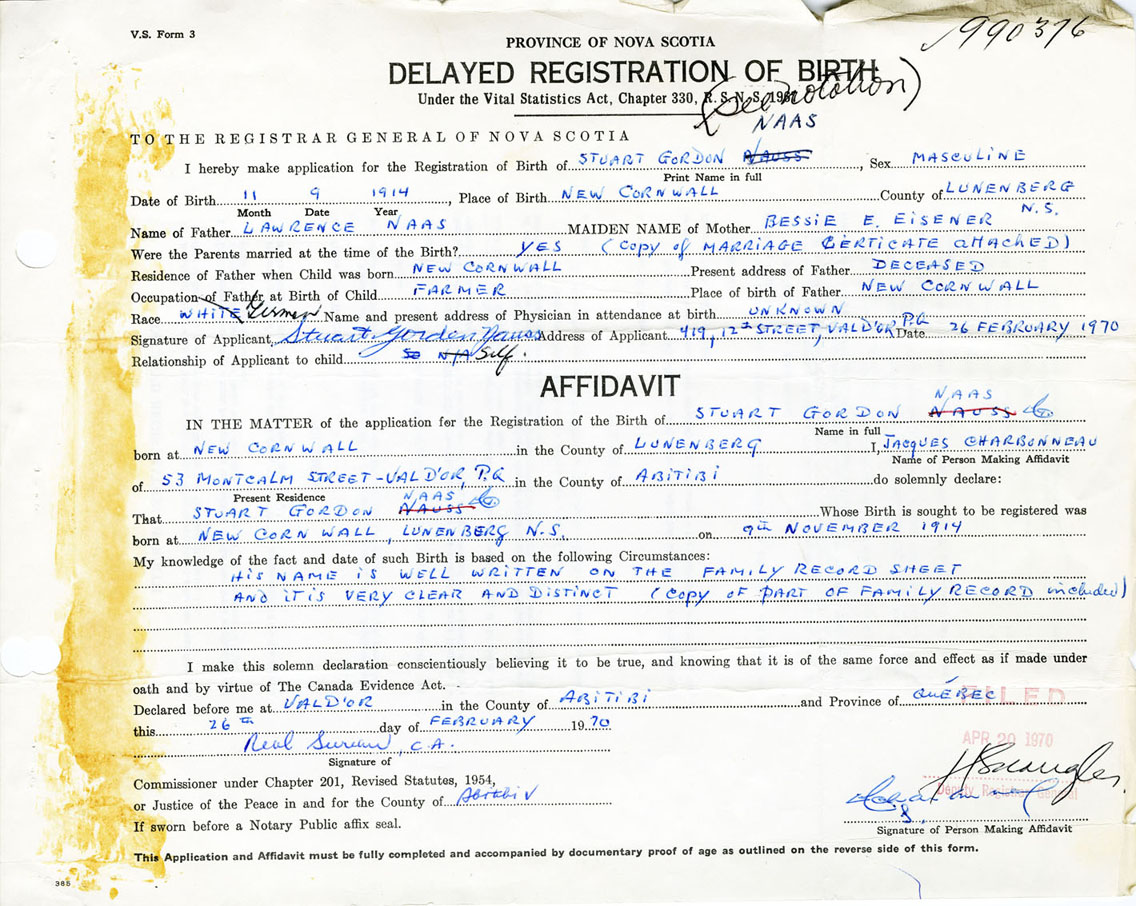 V.S. Form 3
1990376
PROVINCE OF NOVA SCOTIA
DELAYED REGISTRATION OF BIRTH
Under the Vital Statistics Act, Chapter 330, R.S.N.S. 1967
(See notation)
TO THE REGISTRAR GENERAL OF NOVA SCOTIA
NAAS
I hereby make application for the Registration of Birth of STUART GORDON NAUSS, Sex MASCULINE
Print Name in full
Date of Birth 11 9 1914, Place of Birth NEW CORNWALL County of LUNENBERG
Month Date Year N.S.
Name of Father LAWRENCE NAAS MAIDEN NAME of Mother BESSIE E. EISENER
Were the Parents married at the time of the Birth? YES (COPY of MARRIAGE CERTICATE attACHED)
Residence of Father when Child was born NEW CORNWALL Present address of Father DECEASED
Occupation of Father at Birth of Child FARMER Place of birth of Father NEW CORNWALL
Race WHITE German Name and present address of Physician in attendance at birth UNKNOWN
Signature of Applicant Stuart Gorden Nauss Address of Applicant 419, 12th STREET, VAL D'OR P.Q Date 26 FEBRUARY 1970
Relationship of Applicant to child N/A Self.
AFFIDAVIT
NAAS
IN THE MATTER of the application for the Registration of the Birth of STUART GORDON NAUSS
Name in full
born at NEW CORNWALL in the County of LUNENBERG I, JACQUES CHARBONNEAU
Name of Person Making Affidavit
of 53 MONTCALM STREET-VAL D'OR, P.Q. in the County of ABITIBI do solemnly declare:
Present Residence
NAAS
That STUART GORDON NAUSS Whose Birth is sought to be registered was
born at NEW CORN WALL, LUNENBERG N.S. on 9th NOVEMBER 1914
My knowledge of the fact and date of such Birth is based on the following Circumstances:
HIS NAME IS WELL WRITTEN ON THE FAMILY RECORD SHEET
AND IT IS VERY CLEAR AND DISTINCT (COPY OF PART OF FAMILY RECORD included)
I make this solemn declaration conscientiously believing it to be true, and knowing that it is of the same force and effect as if made under
oath and by virtue of The Canada Evidence Act.
Declared before me at VAL D'OR in the County of ABITIBI and Province of QUÉBEC
FILED
this 26th day of FEBRUARY 1970
APR 20 1970
C.A.
Signature of
Commissioner under Chapter 201, Revised Statutes, 1954,
Deputy Registrar General
or Justice of the Peace in and for the County of Abitibi
If sworn before a Notary Public affix seal.
Signature of Person Making Affidavit
This Application and Affidavit must be fully completed and accompanied by documentary proof of age as outlined on the reverse side of this form.
385